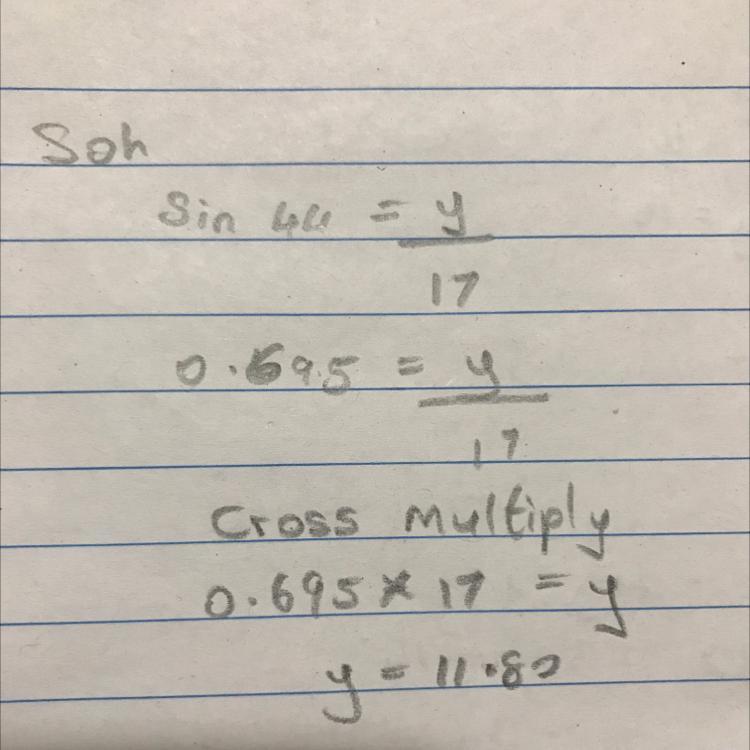 Soh
Sin 44 = y
17
0.695 = y
17
Cross Multiply
0.695 × 17 = y
y = 11.80